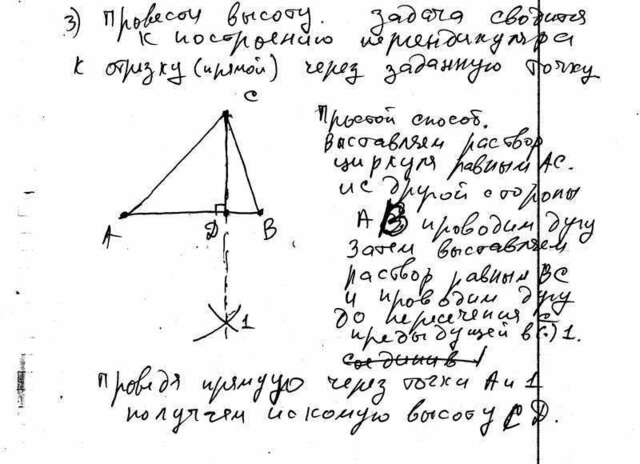 3) Провести высоту. Задача сводится
к построению перпендикуляра
к отрезку (прямой) через заданную точку
C
Простой способ.
Выставляем раствор
циркуля равным AC.
и с другой стороны
A B проводим дугу
Затем выставляем
раствор равным BC
и проводим дугу
до пересечения с
предыдущей в (·) 1.
соединив 1
A
D
B
1
Проведя прямую через точки A и 1
получаем искомую высоту CD.